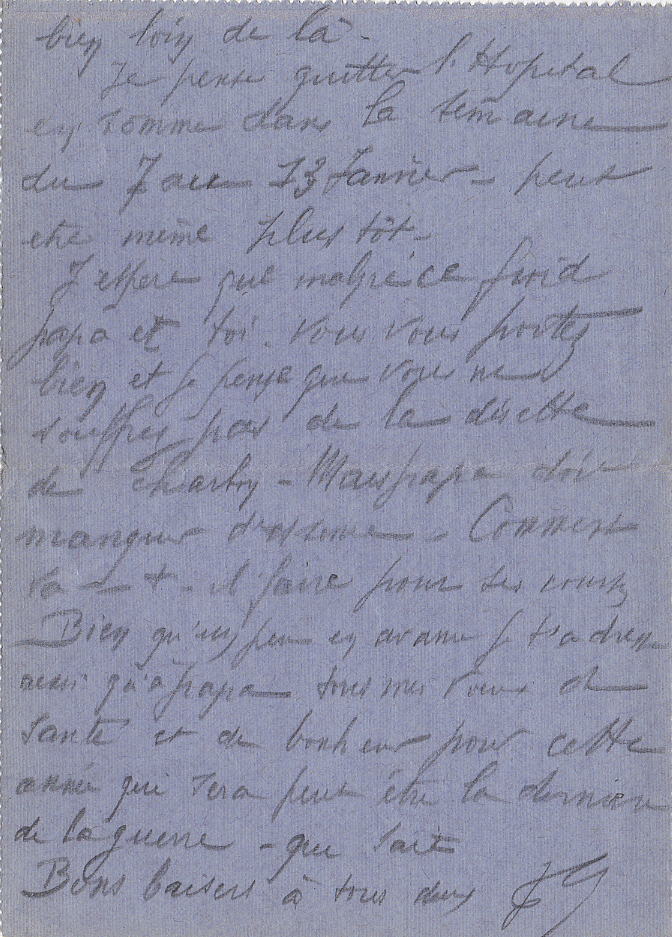 bien loin de là -
Je pense quitter l'Hopital
en somme dans la semaine
du 7 au 13 Janvier - peut
etre même plus tôt -
J'espère que malgré ce froid
papa et toi. vous vous portez
bien et je pense que vous ne
souffrez pas de la disette
de charbon - Mais papa doit
manquer d'essence - Comment
va - t - il faire pour ses courses
Bien qu'un peu en avance je t'adresse
ainsi qu'à papa tous mes voeux de
santé et de bonheur pour cette
année qui sera peut être la dernière
de la guerre - qui sait
Bons baisers à tous deux